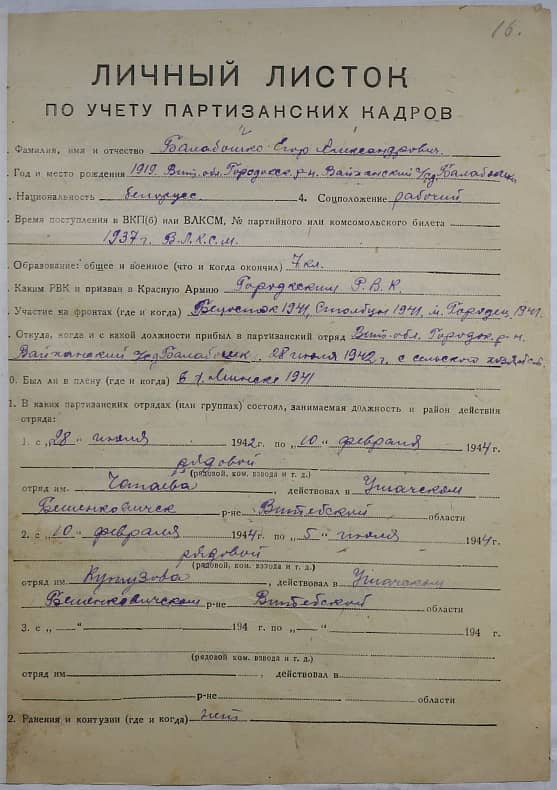 16.
ЛИЧНЫЙ ЛИСТОК
ПО УЧЕТУ ПАРТИЗАНСКИХ КАДРОВ
. Фамилия, имя и отчество Балабошко Егор Александрович.
. Год и место рождения 1919 Вит. обл. Городокск. р-н. Вайханский с/с д. Балабошки
. Национальность белорусс 4. Соцположение рабочий
. Время поступления в ВКП(б) или ВЛКСМ, № партийного или комсомольского билета
1937 г. В.Л.К.С.М.
. Образование: общее и военное (что и когда окончил) 7 кл.
. Каким РВК и призван в Красную Армию Городокским Р.В.К.
. Участие на фронтах (где и когда) Белосток 1941, Столбцы 1941, м. Городец 1941
. Откуда, когда и с какой должности прибыл в партизанский отряд Вит. обл. Городок. р-н.
Вайханский 28 июля 1942 г. с сельского хозяйства
0. Был ли в плену (где и когда) в г. Минске 1941
1. В каких партизанских отрядах (или группах) состоял, занимаемая должность и район действия
отряда:
1. с „28“ июля 1942 г. по „10“ февраля 1944 г.
рядовой
(рядовой, ком. взвода и т. д.)
отряд им. Чапаева, действовал в Ушачском
Бешенковичск р-не Витебской области
2. с „10“ февраля 1944 г. по „5“ июля 1944 г.
рядовой
(рядовой, ком. взвода и т. д.)
отряд им. Кутузова, действовал в Ушачском
Бешенковичском р-не Витебской области
3. с „ “ 194 г. по „ “ 194 г.
(рядовой ком. взвода и т. д.)
отряд им , действовал в
р-не области
2. Ранения и контузии (где и когда) нет